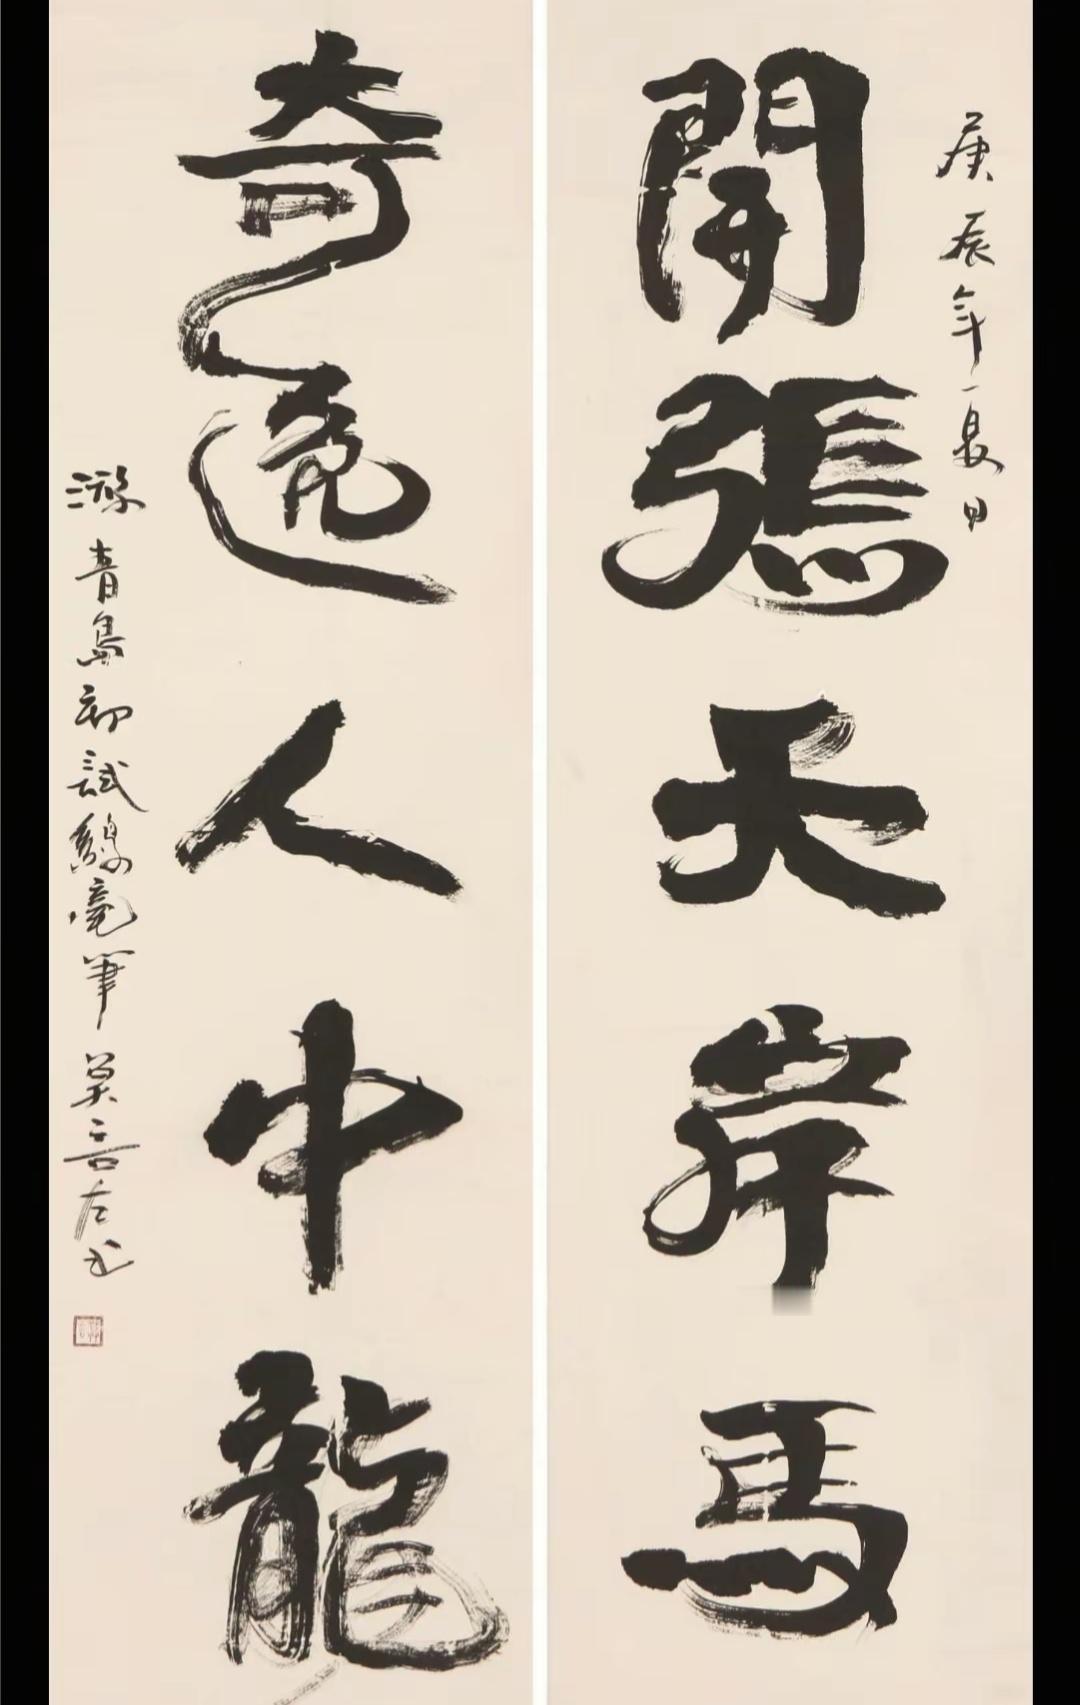 庚辰年夏日
開張天岸馬
奇逸人中龍
游青島初試綠毫筆莫言左书